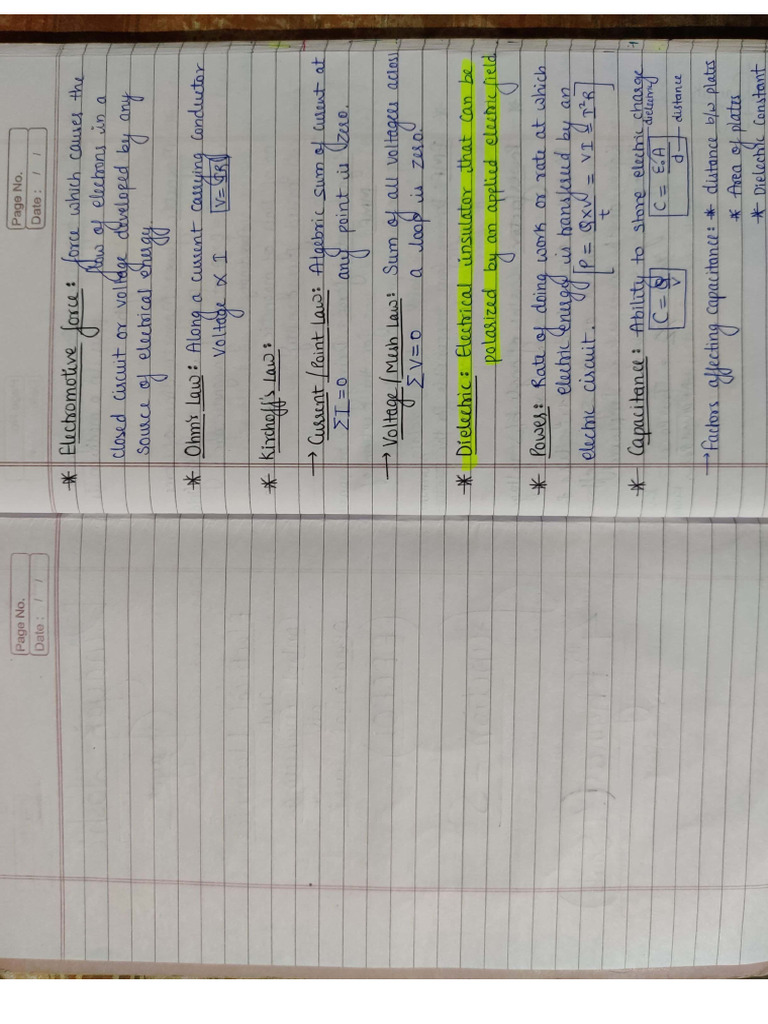 Page No.
Date : / /
* Electromotive force : force which causes the
flow of electrons in a
closed circuit or voltage developed by any
source of electrical energy.
* Ohm's Law : Along a current carrying conductor
Voltage ∝ I V=IR
* Kirchoff's Law :
→ Current / Point Law : Algebric sum of current at
ΣI=0 any point is zero.
→ Voltage / Mesh Law : Sum of all voltages across
ΣV=0 a loop is zero.
* Dielectric : Electrical insulator that can be
polarized by an applied electric field
* Power : Rate of doing work or rate at which
electric energy is transfered by an
electric circuit. [P = Q×V/t = VI = I²R]
* Capacitance : Ability to store electric charge
C = Q/V C = ε₀A/d dielectric distance
→ Factors affecting capacitance : * distance b/w plates
* Area of plates
* Dielectric Constant
Page No.
Date : / /